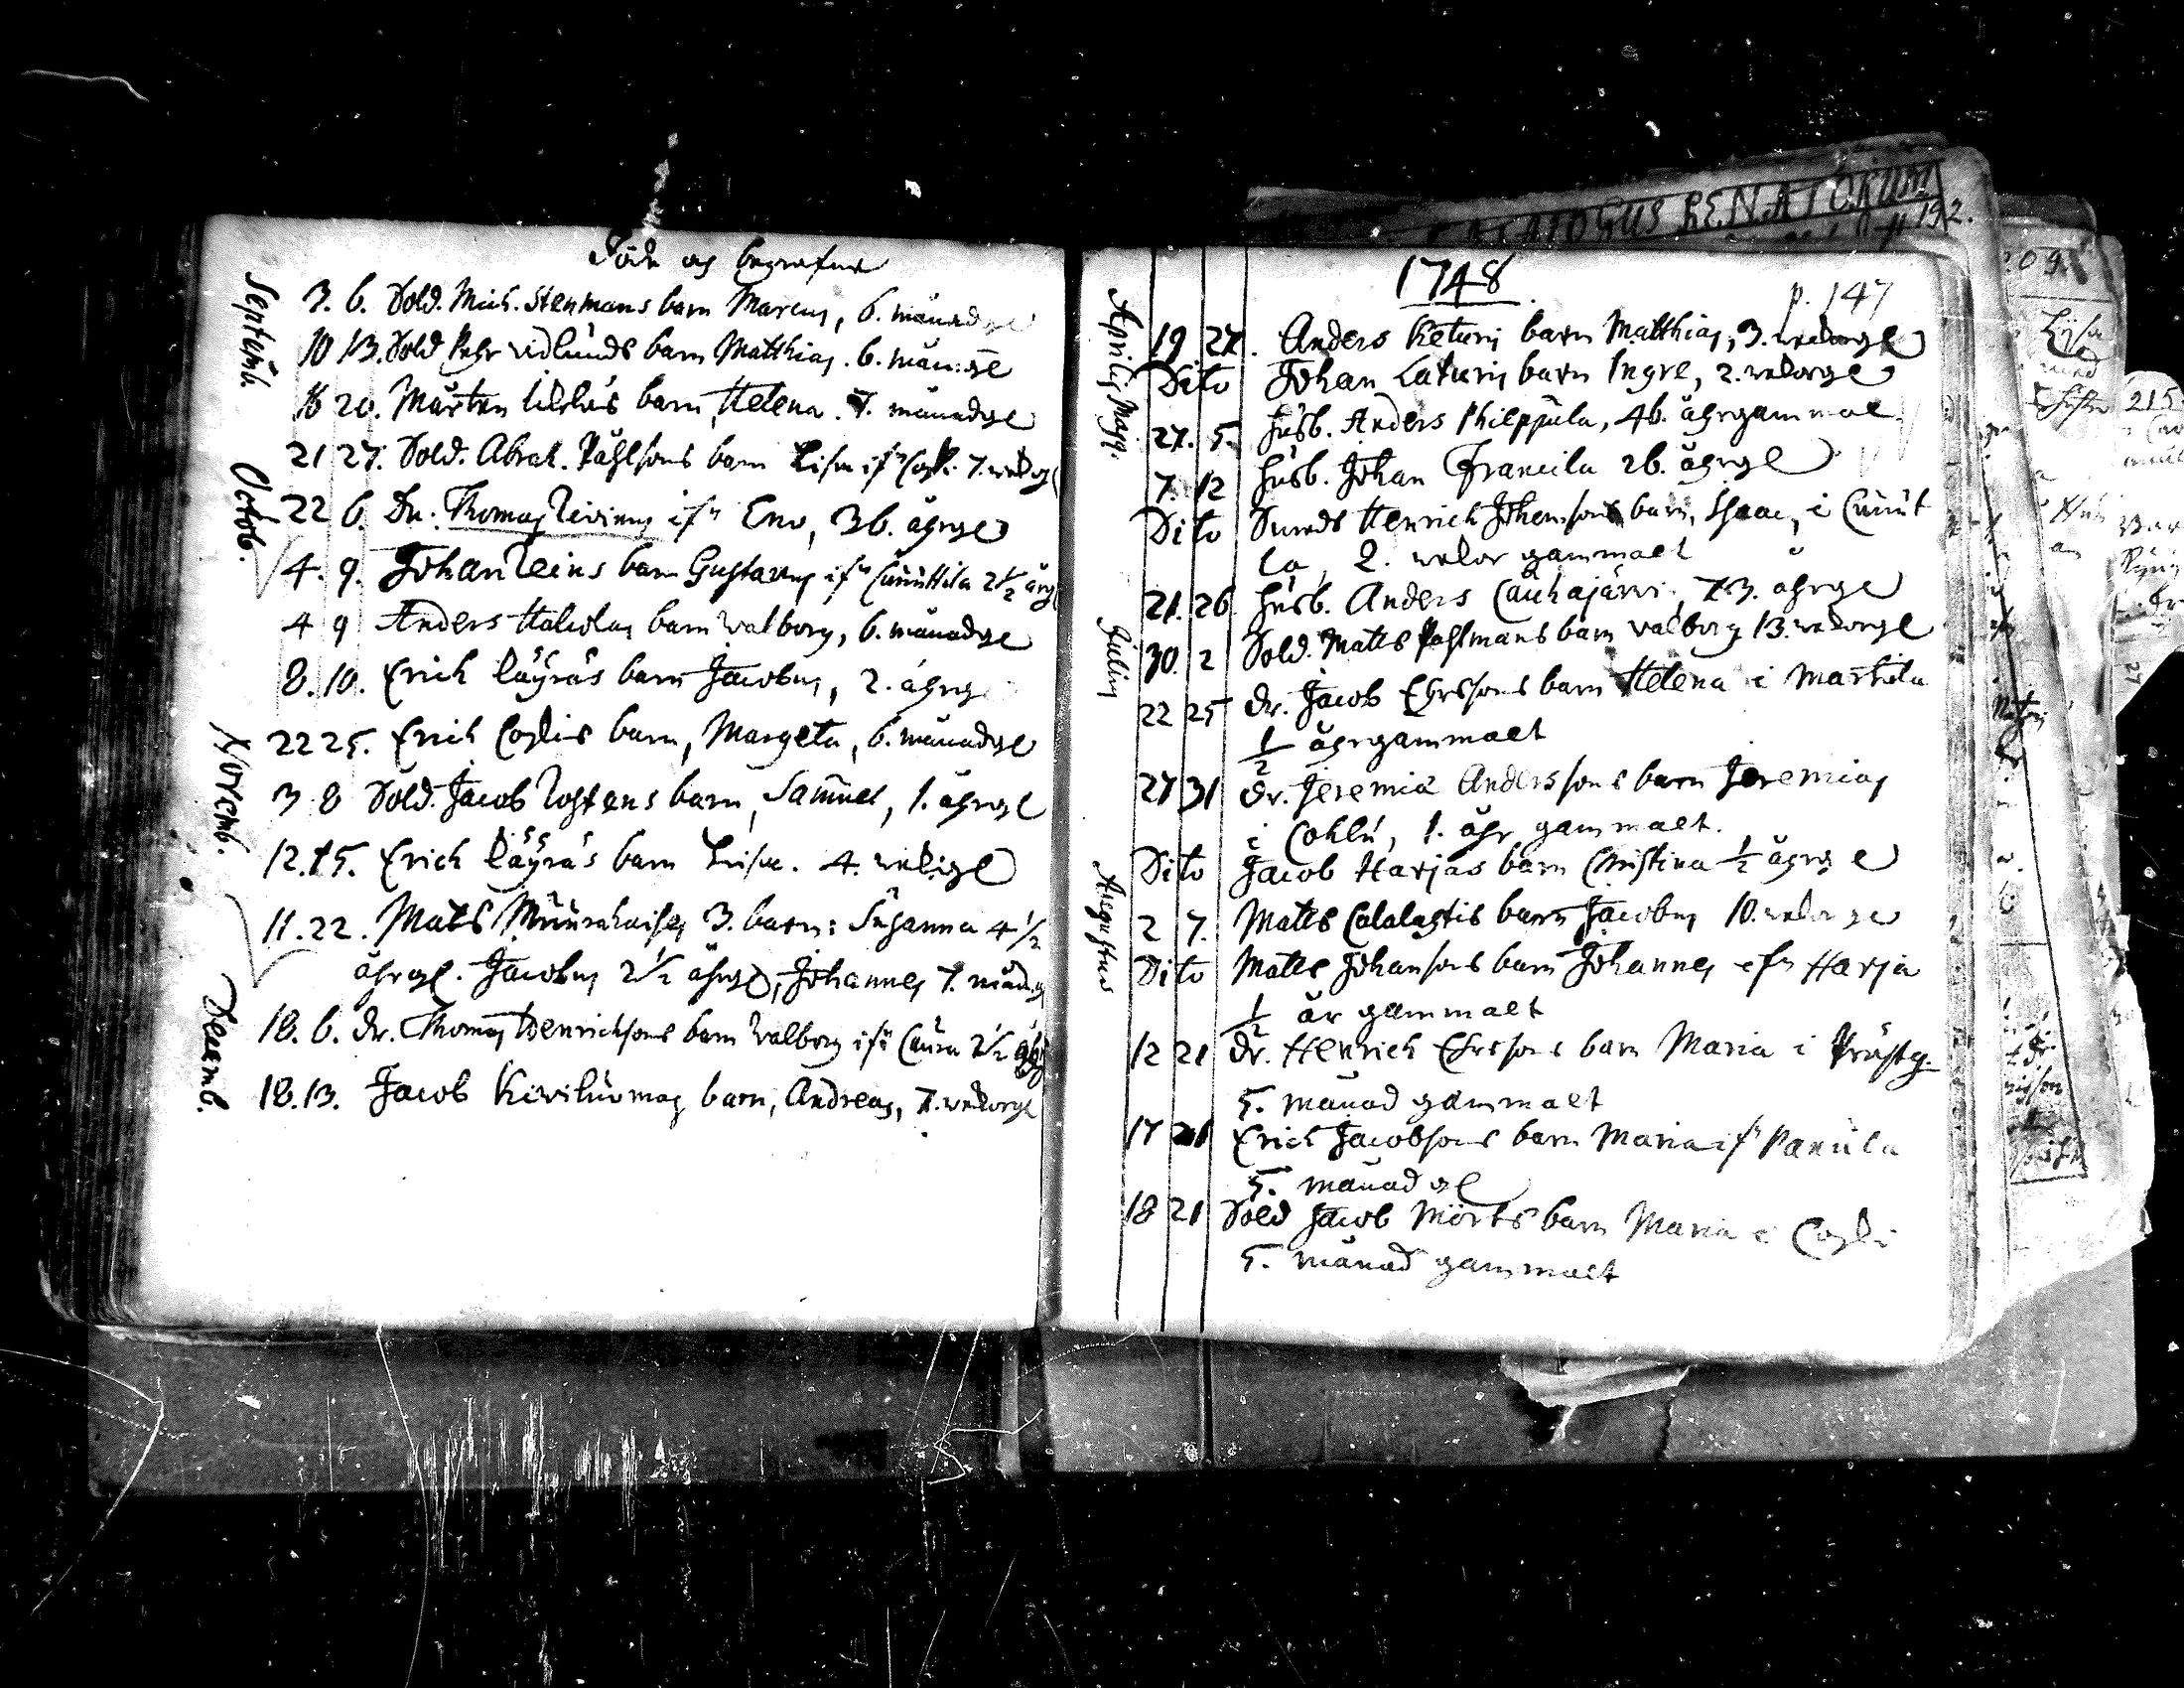 Döde og begrafne
Septemb.
3. 6. Sold. Mich. Stenmans barn Marcus, 6. månadgl
10 13. Sold Pehr vidlunds barn Matthias. 6. mån: gl
16 20. Mårten barn, Helena. 7. månadgl
21 27. Sold. Abrah. Påhlsons barn Lisa ifn 7.
Octob.
22 6. Dn. Thomas ifn Eno, 36. åhrgl
4. 9. Johan barn Gustavus ifn 2 1/2 årgl
4 9 Anders barn Valborg, 6. månadgl
8. 10. Erich Läyräs barn Jacobus, 2. åhrgl
22 25. Erich Coskis barn, Margeta, 6. månadgl
Novemb.
3 8 Sold. Jacob barn, Samuel, 1. åhrgl
12. 15. Erich Läyräs barn Lisa. 4.
11. 22. Mats 3. barn: Susanna 4 1/2
åhrgl. Jacobus 2 1/2 åhrgl, Johannes 7.
Decemb.
18. 6. Dr. Thomas Henrichsons barn Valborg ifn 2 1/2
18. 13. Jacob barn, Andreas, 7. vekorgl
CATALOGUS RENATORUM
1748.
p. 147
Aprilis Maji.
19. 24. Anders Keturis barn Matthias, 3. vekorgl
Dito Johan Laturis barn Ingre, 2. vekorgl
27. 5. husb. Anders Philppula, 46. åhrgammal
7. 12 husb. Johan Francila 26. åhrgl
Dito Henrich Johansons barn, Isaac, i Cuut
la, 2. vekor gammalt
21. 26 husb. Anders Cauhajärvi, 73. åhrgl
Julius
30. 2 Sold. Matts Pahlmans barn Valborg 13. vekorgl
22 25 Dr. Jacob Ehrssons barn Helena i Martila
1/2 åhrgammalt
27 31 Dr. Jeremia Anderssons barn Jeremias
i Cohlu, 1. åhr gammalt.
Dito Jacob Harjas barn Christina 1/2 åhrgl
Augustus
2 7. Matts barn Jacobus 10. vekorgl
Dito Matts Johansons barn Johannes ifn Harja
1/2 år gammalt
12 21 Dr. Henrich Ehrssons barn Maria i Prästg.
5. månad gammalt
17 21 Erich Jacobsons barn Maria ifn Panula
5. månad gl
18 21 Sold Jacob Mörts barn Maria i Coski
5. månad gammalt
215